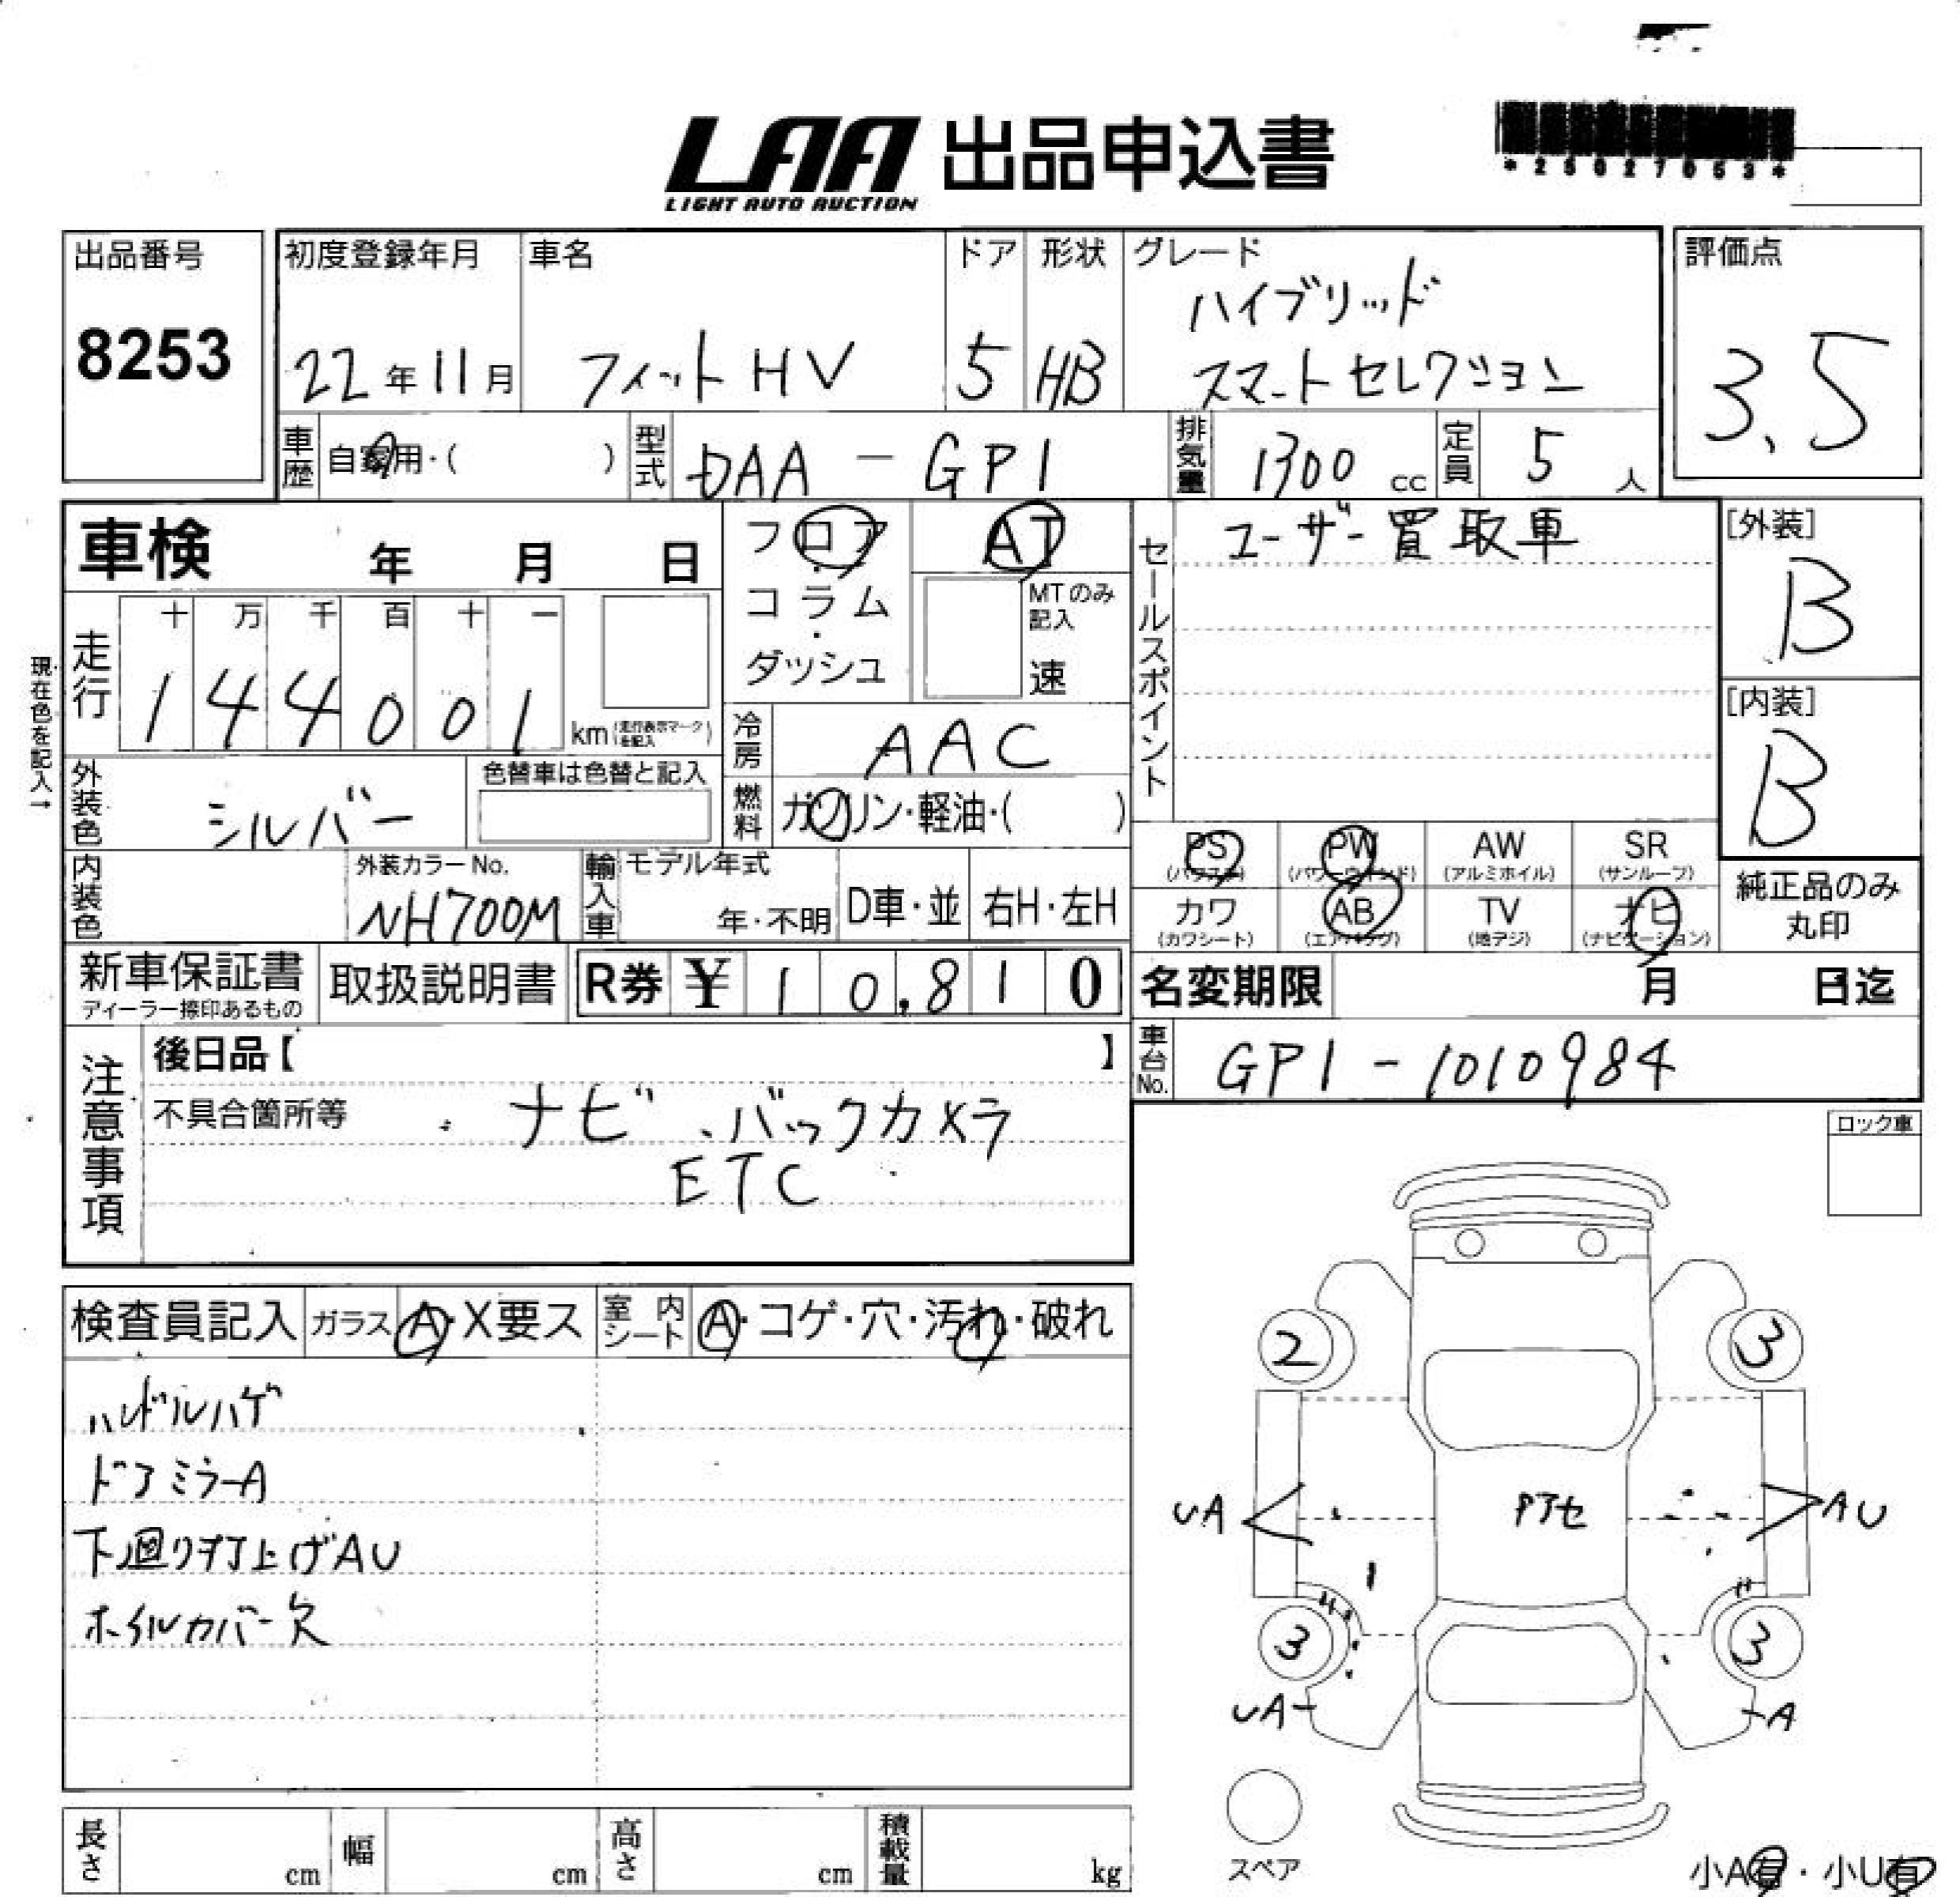 LAA 出品申込書
LIGHT AUTO AUCTION
*25027053*
出品番号
8253
初度登録年月
22年11月
車名
フィットHV
ドア
5
形状
HB
グレード
ハイブリッド
スマートセレクション
評価点
3.5
車歴
自家用・( )
型式
DAA-GP1
排気量
1300 cc
定員
5 人
車検 年 月 日
フロア
・
コラム
・
ダッシュ
AT
MTのみ
記入
速
セールスポイント
ユーザー買取車
[外装]
B
[内装]
B
現在色を記入→
走行
十 万 千 百 十 一
1 4 4 0 0 1 km (走行表示マークを記入)
冷房
AAC
外装色
シルバー
色替車は色替と記入
燃料
ガソリン・軽油・( )
PS
(パワステ)
PW
(パワーウインド)
AW
(アルミホイル)
SR
(サンルーフ)
カワ
(カワシート)
AB
(エアバッグ)
TV
(地デジ)
ナビ
(ナビゲーション)
純正品のみ
丸印
内装色
外装カラーNo.
NH700M
輸入車
モデル年式
年・不明
D車・並
右H・左H
新車保証書
ディーラー捺印あるもの
取扱説明書
R券 ¥ 10,810
名変期限 月 日迄
車台No.
GP1-1010984
注意事項
後日品【 】
不具合箇所等
ナビ、バックカメラ
ETC
ロック車
検査員記入
ガラス
A・X要ス
室内シート
A・コゲ・穴・汚れ・破れ
ハンドルハゲ
ドアミラーA
下廻り打上げAU
ホイルカバー欠
2
3
UA
AU
3
3
UA
A
スペア
小A有・小U有
長さ cm
幅 cm
高さ cm
積載量 kg